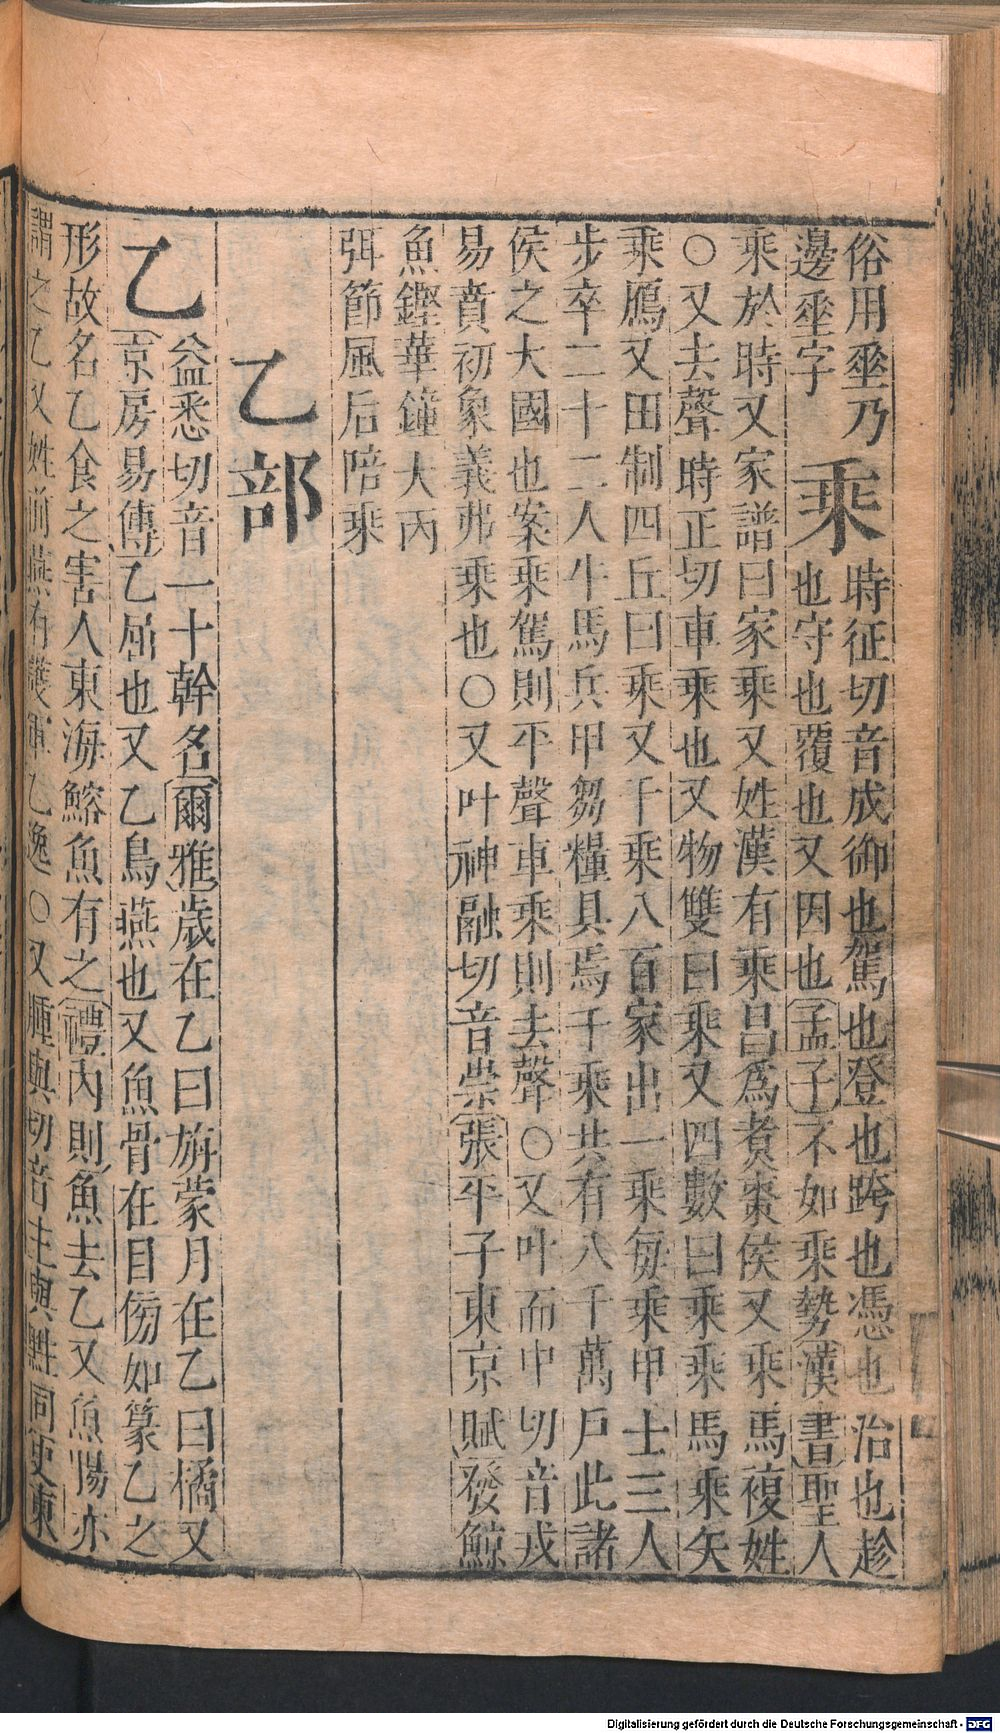 俗用坐乃 時征切音成御也駕也登也跨也憑也治也趁
邊坐字 乘 也守也覆也又因也孟子不如乘勢漢書聖人
乘於時又家譜曰家乘又姓漢有乘昌爲煑棗侯又乘馬複姓
○又去聲時正切車乘也又物雙曰乘又四數曰乘乘馬乘矢
乘鴈又田制四丘曰乘又千乘八百家出一乘每乘甲士三人
步卒二十二人牛馬兵甲芻糧具焉千乘共有八千萬戶此諸
侯之大國也案乘駕則平聲車乘則去聲○又叶而中切音戎
易賁初象義弗乘也○又叶神融切音崇張平子東京賦發鯨
魚鏗華鐘大丙
弭節風后陪乘
乙部
乙 益悉切音一十幹名爾雅歲在乙曰旃蒙月在乙曰橘又
京房易傳乙屈也又乙鳥燕也又魚骨在目傍如篆乙之
形故名乙食之害人東海鰫魚有之禮內則魚去乙又魚腸亦
謂之乙又姓前燕有護軍乙逸○又腫與切音主與黈同史東
Digitalisierung gefördert durch die Deutsche Forschungsgemeinschaft - DFG